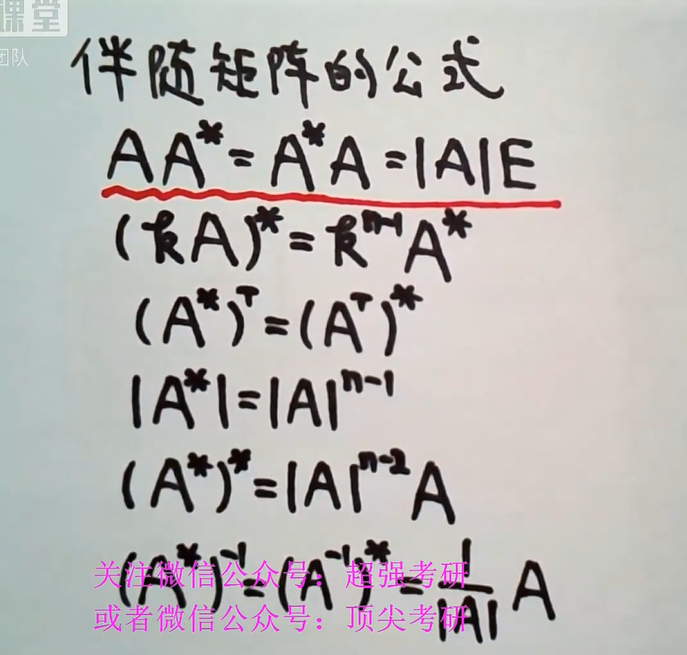 课堂
团队
伴随矩阵的公式
AA* = A*A = |A|E
(kA)* = kⁿ⁻¹A*
(A*)ᵀ = (Aᵀ)*
|A*| = |A|ⁿ⁻¹
(A*)* = |A|ⁿ⁻²A
(A*)⁻¹ = (A⁻¹)* = 1/|A| A
关注微信公众号：超强考研
或者微信公众号：顶尖考研